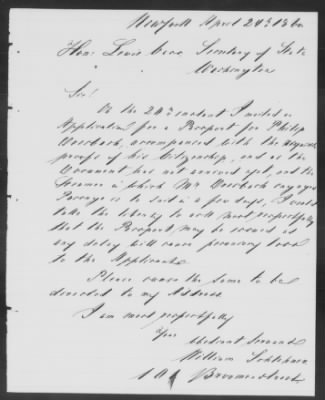 New York April 28th 1860
Hon: Lewis Cass Secretary of State
Washington
Sir!
On the 24th instant I mailed a
Application for a Passport for Philip
accompanied with the
proofs of his Citizenship, and as the
Document has not arrived yet, and the
Steamer in which Mr engaged
Passage is to sail in a few days, I would
take the liberty to ask most respectfully
that the Passport may be issued as
any delay will cause pecuniary loss
to the Applicant.
Please cause the same to be
directed to my Address
I am most respectfully
Your
obedient Servant
William
Broome street